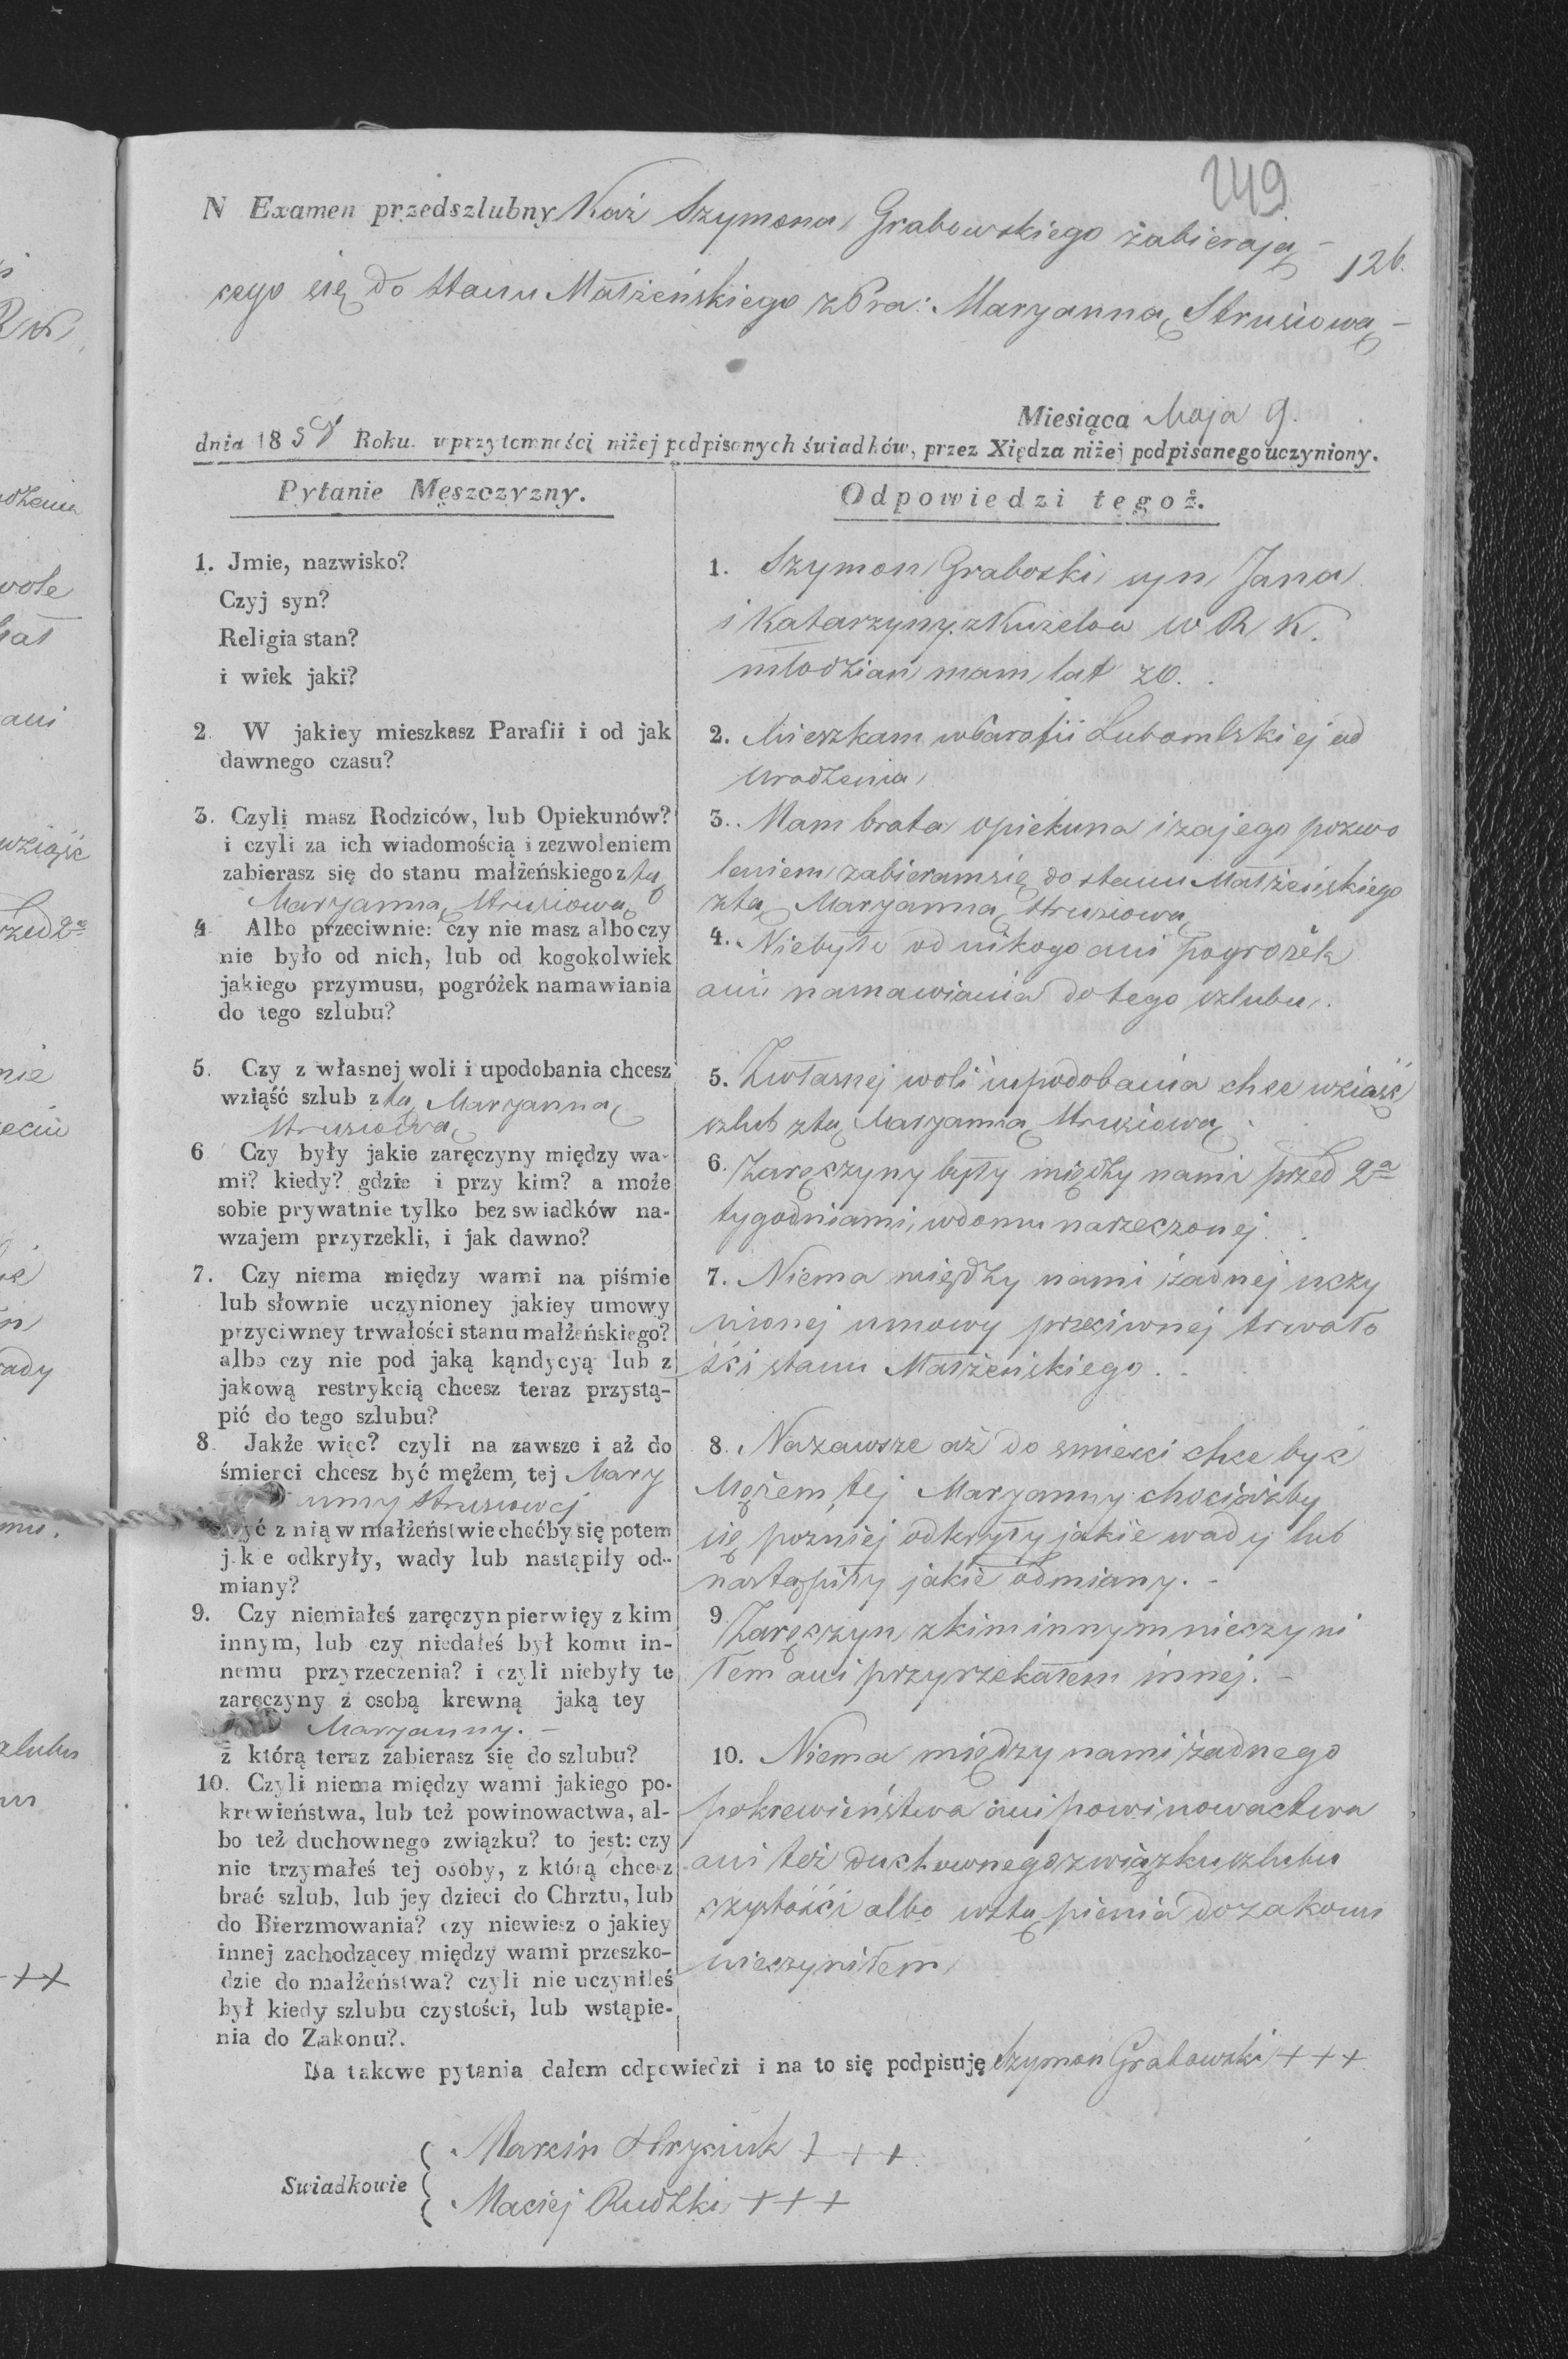 249
N Examen przedszlubny Każ Szymona Grabowskiego zabierają-
126.
cego się do Stanu Małżeńskiego z Pra: Maryanną Strusiową-
Miesiąca Maja 9.
dnia 185 Roku. w przytomności niżej podpisanych świadków, przez Xiędza niżej podpisanego uczyniony.
Pytanie Męszczyzny.
1. Jmie, nazwisko?
Czyj syn?
Religia stan?
i wiek jaki?
2. W jakiey mieszkasz Parafii i od jak
dawnego czasu?
3. Czyli masz Rodziców, lub Opiekunów?
i czyli za ich wiadomością i zezwoleniem
zabierasz się do stanu małżeńskiego z tą
Maryanną Strusiową
4 Albo przeciwnie: czy nie masz albo czy
nie było od nich, lub od kogokolwiek
jakiego przymusu, pogróżek namawiania
do tego szlubu?
5. Czy z własnej woli i upodobania chcesz
wziąść szlub z tą Maryanną
Strusiową
6 Czy były jakie zaręczyny między wa-
mi? kiedy? gdzie i przy kim? a może
sobie prywatnie tylko bez swiadków na-
wzajem przyrzekli, i jak dawno?
7. Czy niema między wami na piśmie
lub słownie uczynioney jakiey umowy
przyciwney trwałości stanu małżeńskiego?
albo czy nie pod jaką kąndycyą lub z
jakową restrykcią chcesz teraz przystą-
pić do tego szlubu?
8. Jakże więc? czyli na zawsze i aż do
śmierci chcesz być mężem, tej Mary
anny Strusiowej
żyć z nią w małżeństwie choćby się potem
jkie odkryły, wady lub nastąpiły od-
miany?
9. Czy niemiałeś zaręczyn pierwięy z kim
innym, lub czy niedałeś był komu in-
nemu przyrzeczenia? i czyli niebyły te
zaręczyny z osobą krewną jaką tey
Maryanny.-
z którą teraz zabierasz się do szlubu?
10. Czyli niema między wami jakiego po-
krewieństwa, lub też powinowactwa, al-
bo też duchownego związku? to jest: czy
nie trzymałeś tej osoby, z którą chcesz
brać szlub, lub jey dzieci do Chrztu, lub
do Bierzmowania? czy niewiesz o jakiey
innej zachodzącey między wami przeszko-
dzie do małżeństwa? czyli nie uczyniłeś
był kiedy szlubu czystości, lub wstąpie-
nia do Zakonu?.
Odpowiedzi tegoż.
1. Szymon Graboski syn Jana
i Katarzyny z Kuzelow w R K.
młodzian mam lat 20.
2. Mieszkam w Parafii Lubomlskiej od
Urodzenia
3. Mam brata opiekuna i za jego pozwo
leniem zabieram się do stanu Małżeńskiego
z tą Maryanną Strusiową
4. Niebyło od nikogo ani pogrożek
ani namawiania do tego szlubu.
5. Zwłasnej woli i upodobania chce wziąść
szlub z tą Maryanną Strusiową.
6. Zaręczyny były między nami przed 2a
tygodniami, w domu narzeczonej.
7. Niema między nami żadnej uczy
nionej umowy przeciwnej trwało
ści stanu Małżeńskiego.
8. Nazawsze aż do smierci chce być
Mężem tej Maryanny chociażby
się pozniej odkryły jakie wady lub
nastąpiły jakie odmiany.-
9. Zaręczyn z kim innym nieczyni
łem ani przyrzekałem innej.-
10. Niema między nami żadnego
pokrewieństwa ani powinowactwa
ani też duchownego związku szlubu
czystości albo wstąpienia do zakonu
nieczyniłem
Na takowe pytania dałem odpowiedzi i na to się podpisuję Szymon Grabowski +++
Swiadkowie
Marcin Hryciuk +++
Maciej Rudzki +++